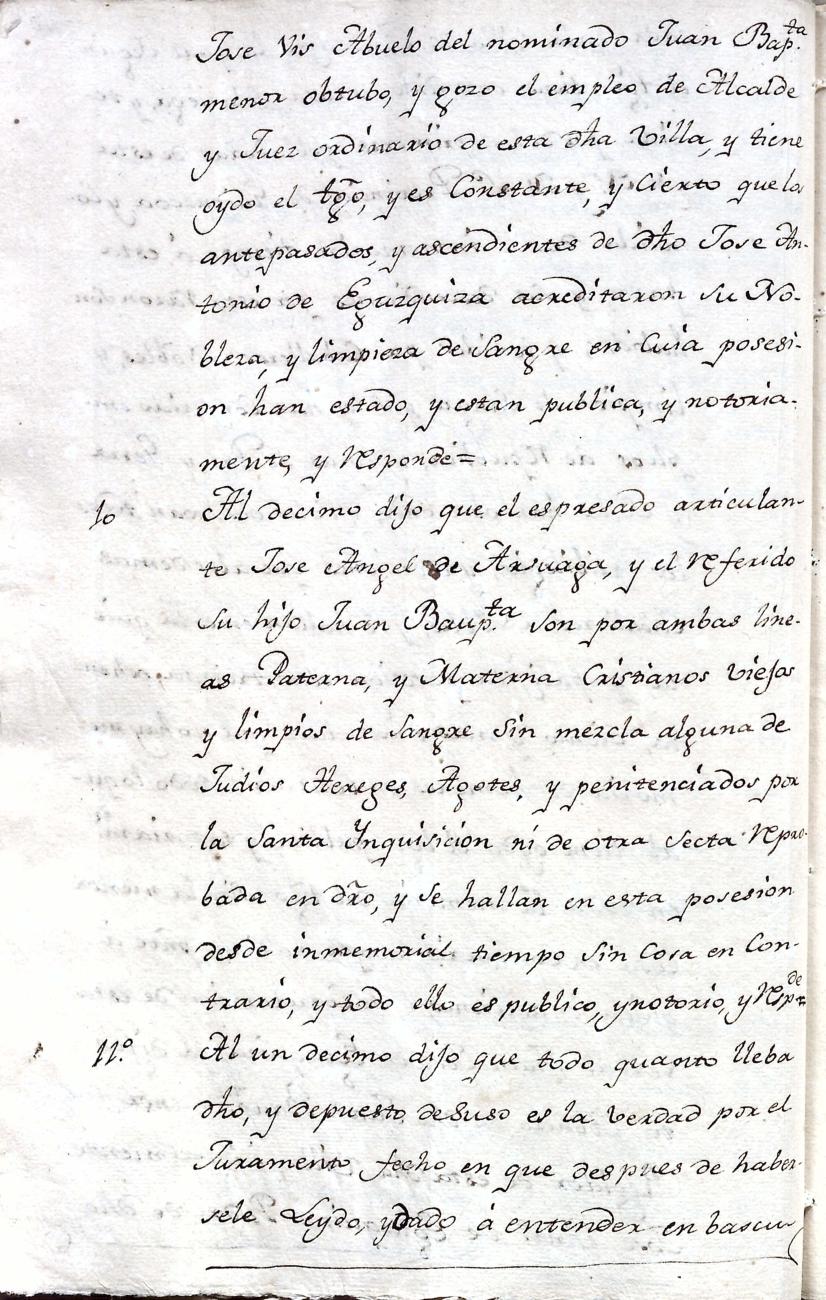 Jose Vis Abuelo del nominado Juan Bap.ta
menor obtubo, y gozo el empleo de Alcalde
y Juez ordinario de esta dha Villa, y tiene
oydo el tgo, y es Constante, y Cierto que los
antepasados, y ascendientes de dho Jose An-
tonio de Eguzquiza acreditaron su No-
bleza, y limpieza de Sangre en Cuia posesi-
on han estado, y estan publica, y notoria-
mente, y responde=
10 Al decimo dijo que el espresado articulan-
te Jose Angel de Arsuaga, y el referido
su hijo Juan Baup.ta son por ambas line-
as Paterna, y Materna Cristianos viejos
y limpios de sangre sin mezcla alguna de
Judios Hereges, Agotes, y penitenciados por
la Santa Ynquisicion ni de otra secta repro-
bada en dro, y se hallan en esta posesion
desde inmemorial tiempo sin Cosa en Con-
trario, y todo ello es publico, y notorio, y resp.de
11.º Al un decimo dijo que todo quanto lleba
dho, y depuesto desuso es la verdad por el
Juramento fecho en que despues de haber-
sele Leydo, y dado á entender en bascu